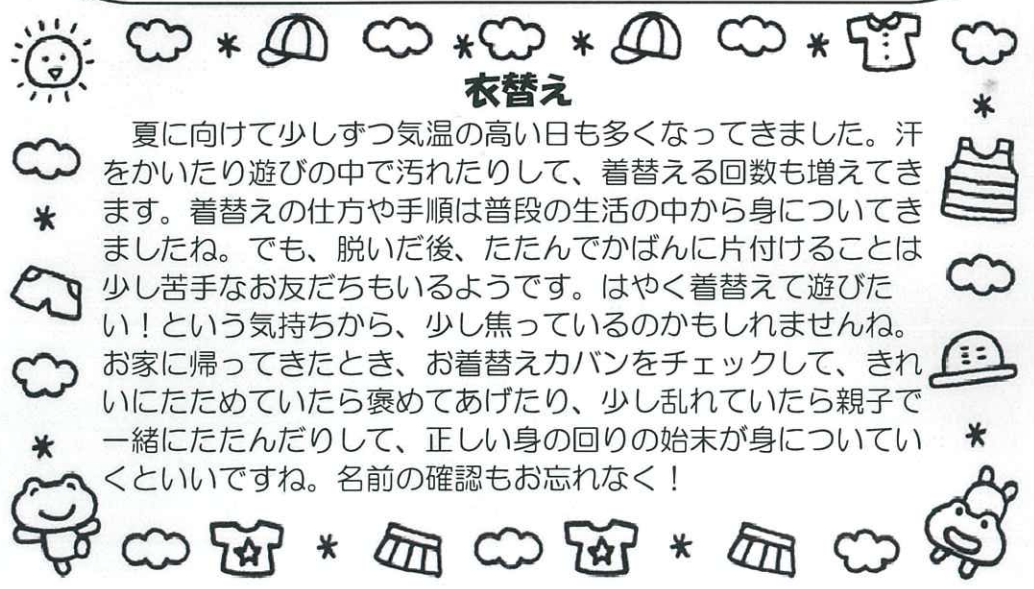 衣替え
　夏に向けて少しずつ気温の高い日も多くなってきました。汗
をかいたり遊びの中で汚れたりして、着替える回数も増えてき
ます。着替えの仕方や手順は普段の生活の中から身についてき
ましたね。でも、脱いだ後、たたんでかばんに片付けることは
少し苦手なお友だちもいるようです。はやく着替えて遊びた
い！という気持ちから、少し焦っているのかもしれませんね。
お家に帰ってきたとき、お着替えカバンをチェックして、きれ
いにたためていたら褒めてあげたり、少し乱れていたら親子で
一緒にたたんだりして、正しい身の回りの始末が身についてい
くといいですね。名前の確認もお忘れなく！